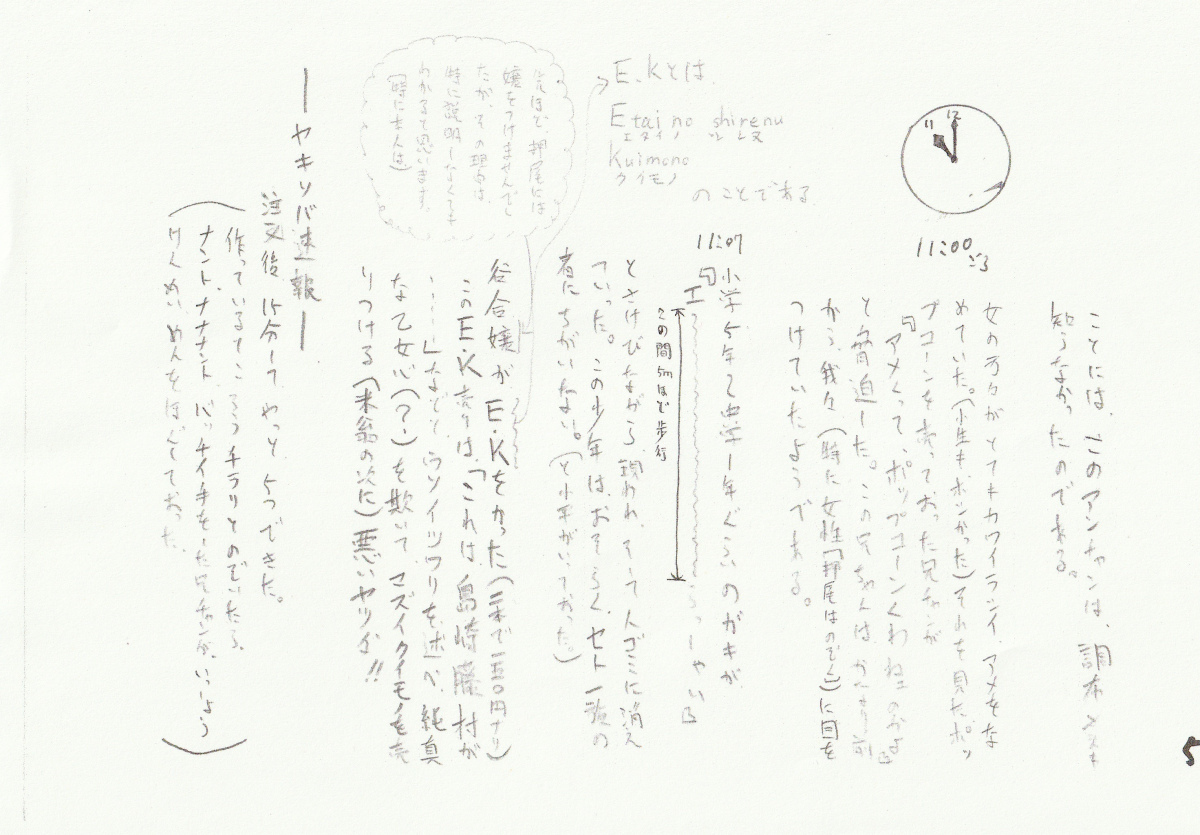 ことには、このアンチャンは、調布メスキ
知らなかったのである。
11
12
11:00ごろ
女の方々がとてもカワイラシイ、アメをな
めていた。(小生もホシかった)それを見たポッ
プコーンを売っておった兄チャンが
「アメくって、ポップコーンくわねェのかよ」
と脅迫した。この兄ちゃんはかなり前
から、我々(特に女性「押尾はのぞく」)に目を
つけていたようである。
11:07
小学5年〜中学1年ぐらいのガキが
「エ〜〜〜らっしゃい」
この間5mほど歩行
とさけびながら現われ、そして人ごみに消え
ていった。この少年は、おそらく、セト一族の
者にちがいない。(と小平がいておった。)
E.Kとは、
Etai no shirenu
エタイ ノ シレヌ
Kuimono
クイモノ
のことである
谷合嬢がE・Kをかった(二本で一五〇円ナリ)
このE・K売りは、「これは島崎藤村が
……」などと、ウソイツワリを述べ、純真
な乙女心(?)を欺いて、マズイクイモノを売
りつける(末翁の次に)悪いヤツだ!!
先ほど、押尾には
嬢をつけませんでし
たが、その理由は
特に説明しなくても
わかると思います。
(特に士人は)
―ヤキソバ速報―
注文後15分してやっと5つできた。
(作っているところをチラリとのぞいたら、
ナント、ナナナント、バッチイ手をした兄チャンが、いっしょう
けんめい、めんをほぐしておった。)
5